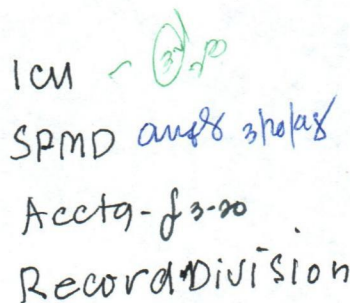 ICU -
SPMD 3/20/28
Acctg - f 3-20
Record Division